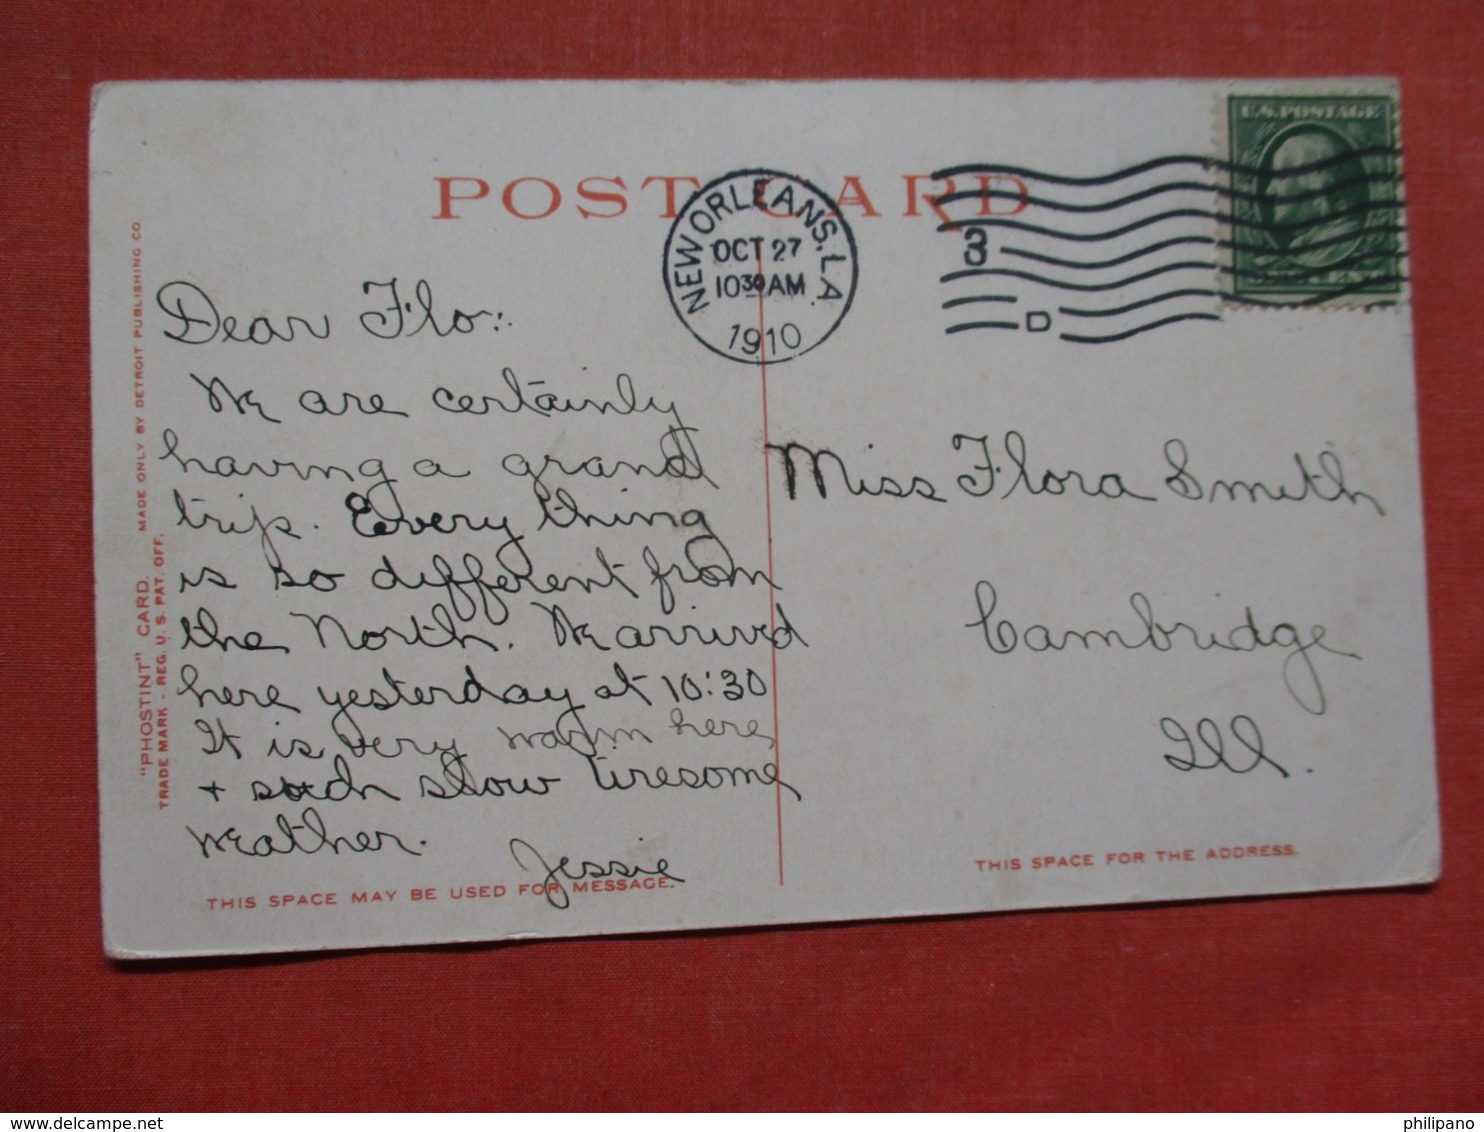 POST CARD
NEW ORLEANS. LA.
OCT 27
10 30 AM
1910
3
D
U.S. POSTAGE
Dear Flo:
We are certainly
having a grand
trip. Every thing
is so different from
the North. We arrived
here yesterday at 10:30
It is very warm here
+ such slow tiresome
weather.
Jessie
Miss Flora Smith
Cambridge
Ill.
THIS SPACE MAY BE USED FOR MESSAGE.
THIS SPACE FOR THE ADDRESS.
"PHOSTINT" CARD. MADE ONLY BY DETROIT PUBLISHING CO.
TRADE MARK - REG. U. S. PAT. OFF.
philipano
delcampe.net